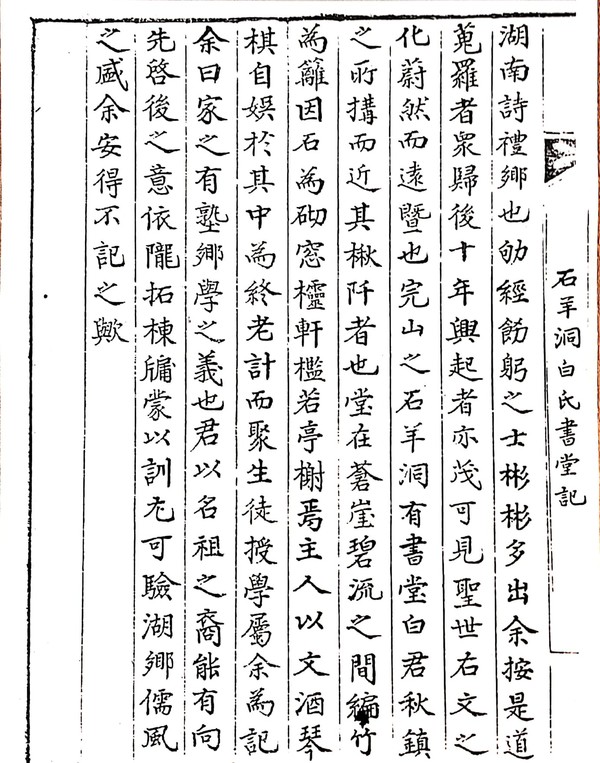 石羊洞白氏書堂記
湖南詩禮鄉也劬經飭躬之士彬彬多出余按是道
蒐羅者衆歸後十年興起者亦茂可見聖世右文之
化蔚然而遠曁也完山之石羊洞有書堂白君秋鎮
之所搆而近其楸阡者也堂在蒼崖碧流之間編竹
為籬因石為砌窓欞軒檻若亭榭焉主人以文酒琴
棋自娛於其中為終老計而聚生徒授學屬余為記
余曰家之有塾鄉學之義也君以名祖之裔能有向
先啓後之意依隴拓棟牖蒙以訓尤可驗湖鄉儒風
之盛余安得不記之歟